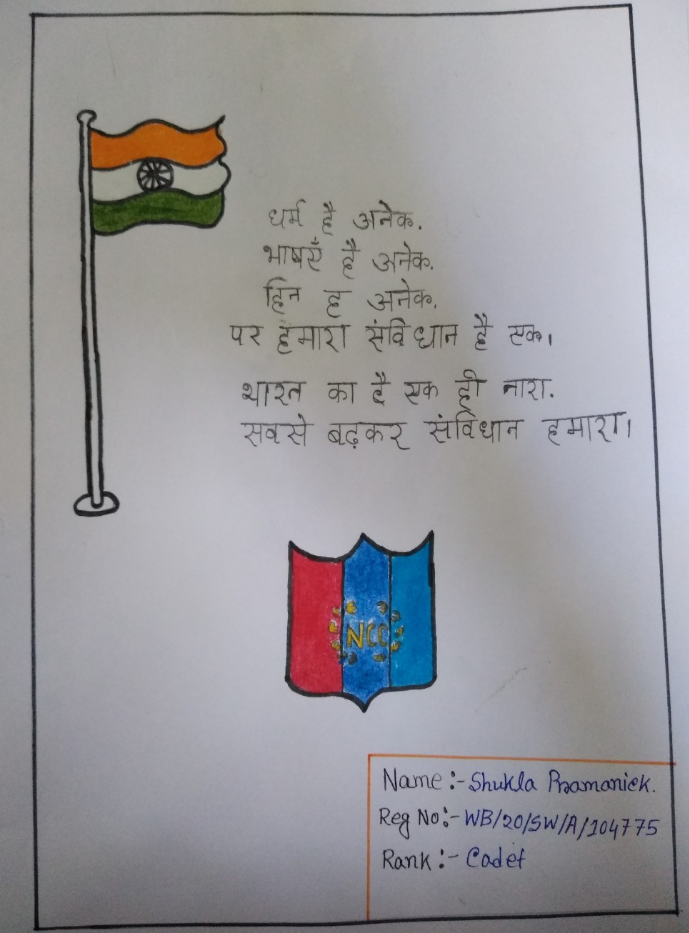 धर्म है अनेक.
भाषाएँ है अनेक.
हिन ह अनेक.
पर हमारा संविधान है एक।
भारत का है एक ही नारा.
सबसे बढ़कर संविधान हमारा।
NCC
Name:- Shukla Pramanick.
Reg No:- WB/20/SW/A/104775
Rank:- Cadet